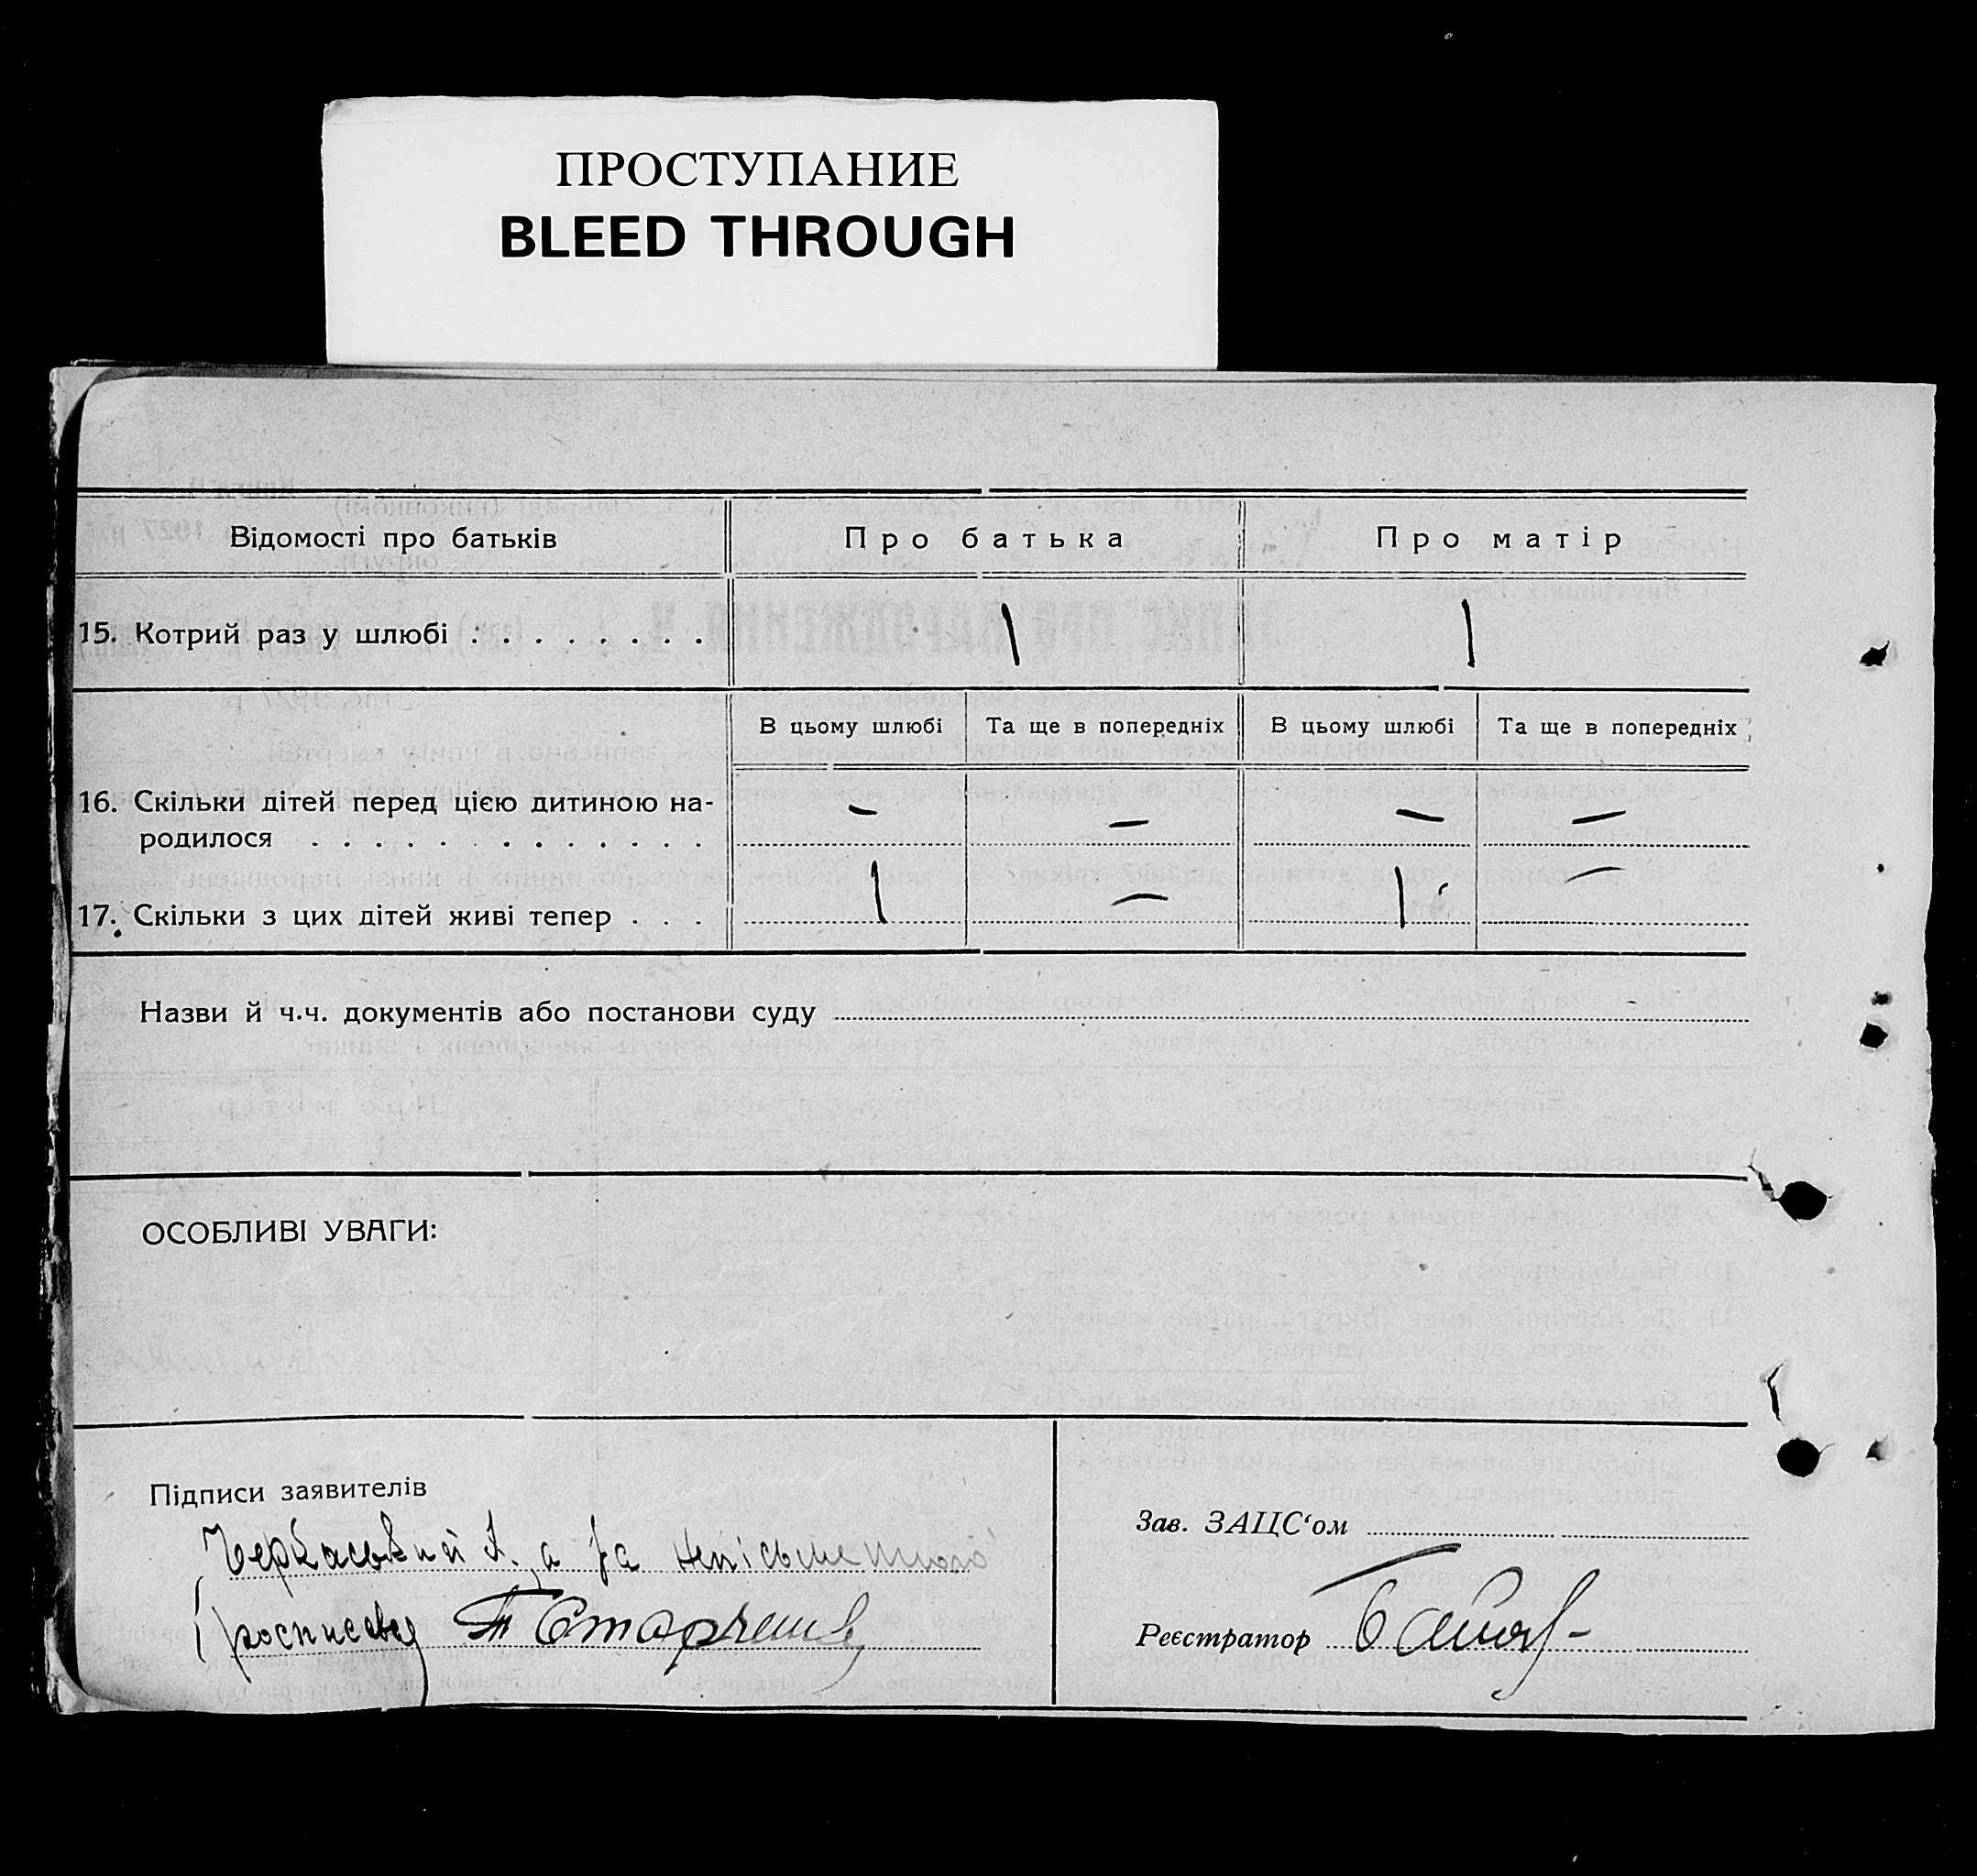 ПРОСТУПАНИЕ
BLEED THROUGH
Відомості про батьків
Про батька
Про матір
15. Котрий раз у шлюбі . . . . . . . .
1
1
В цьому шлюбі
Та ще в попередніх
В цьому шлюбі
Та ще в попередніх
16. Скільки дітей перед цією дитиною на-
родилося . . . . . . . . . . . . .
—
—
—
—
17. Скільки з цих дітей живі тепер . . .
1
—
1
—
Назви й ч.ч. документів або постанови суду
ОСОБЛИВІ УВАГИ:
Підписи заявителів
Черкаський А. а за неписьменного
росписавсь Т Старченко
Зав. ЗАЦС‘ом
Реєстратор